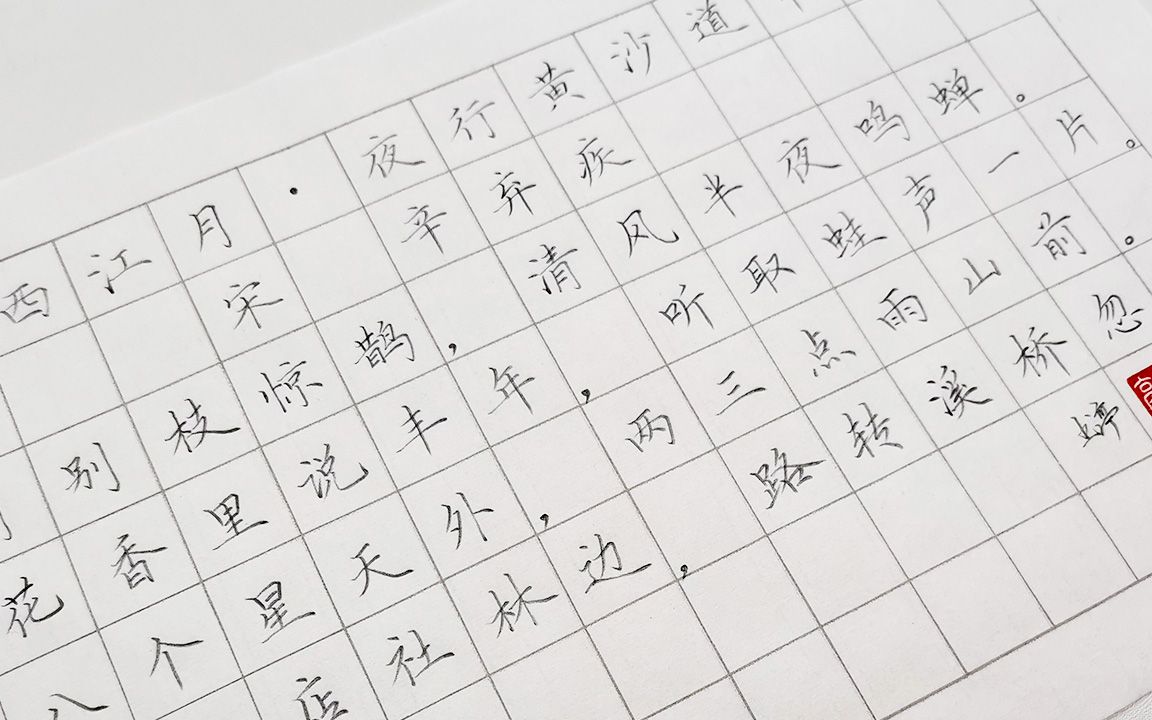 西江月·夜行黄沙道
宋 辛弃疾
别枝惊鹊，清风半夜鸣蝉。
花香里说丰年，听取蛙声一片。
八个星天外，两三点雨山前。
店社林边，路转溪桥忽
婷